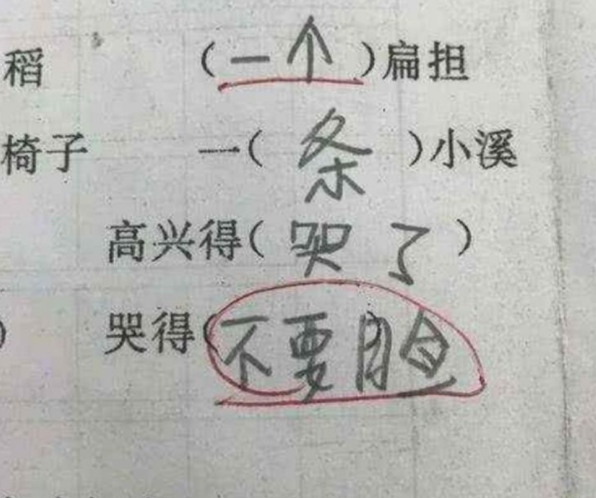 稻 (一个)扁担
椅子 一(条)小溪
高兴得(哭了)
) 哭得(不要脸)